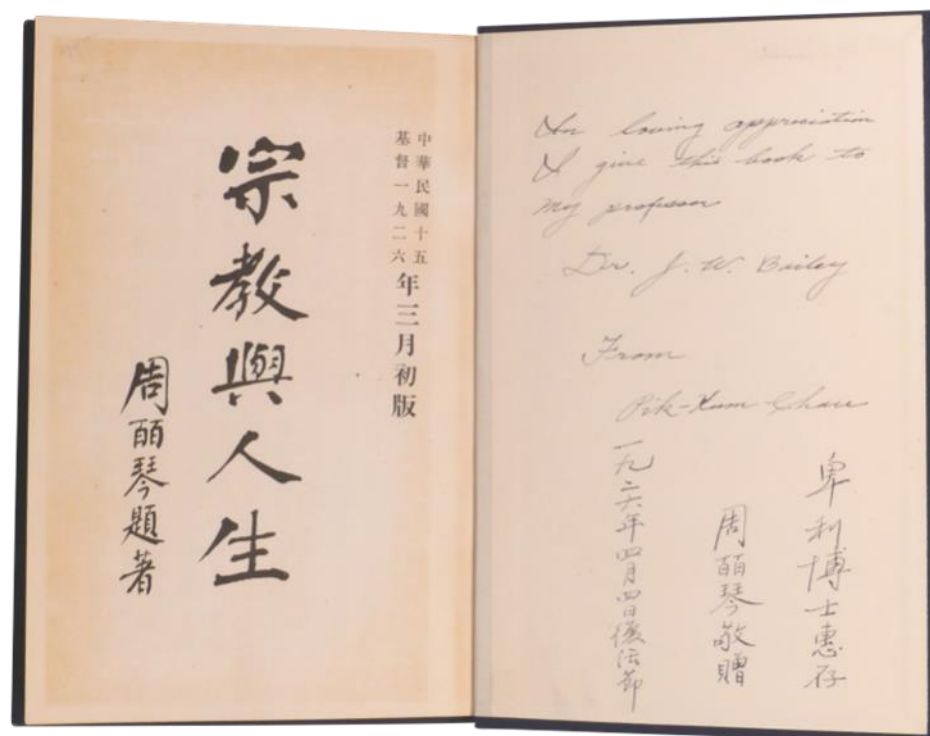 中華民國十五
基督一九二六
年三月初版
宗教與人生
周皕琴題著
In loving appreciation
I give this book to
my professor
Dr. J. W. Bailey
From
Pik-Kum Chau
卑利博士惠存
周皕琴敬贈
一九二六年四月四日復活節